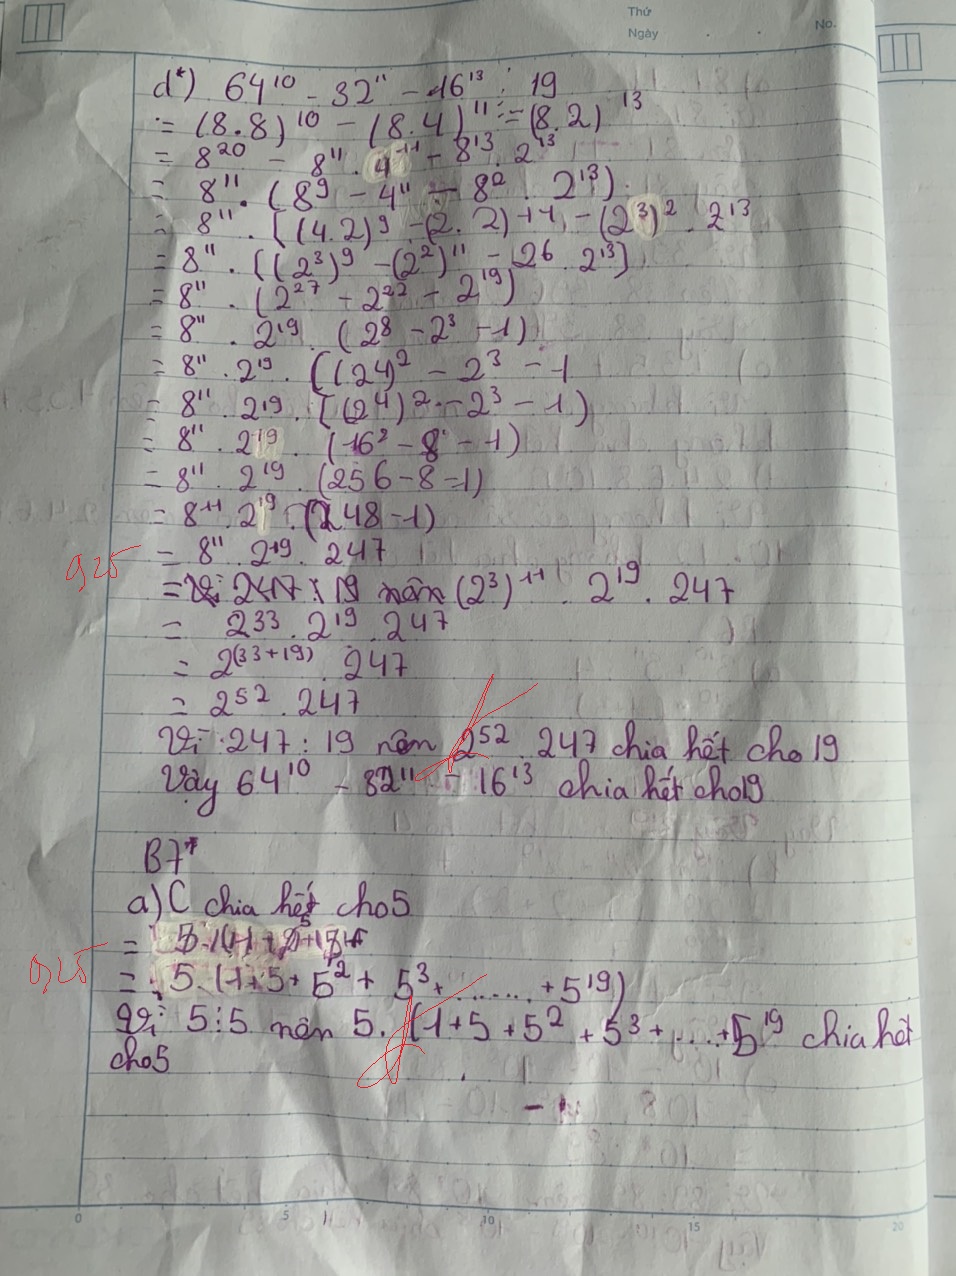 Thứ
Ngày
No.
d*) 64¹⁰ - 32¹¹ - 16¹³ ⋮ 19
= (8.8)¹⁰ - (8.4)¹¹ - (8.2)¹³
= 8²⁰ - 8¹¹ . 4¹¹ - 8¹³ . 2¹³
= 8¹¹ . (8⁹ - 4¹¹ - 8² . 2¹³)
= 8¹¹ . [(4.2)⁹ - (2.2)¹¹ - (2³)² . 2¹³
= 8¹¹ . ((2³)⁹ - (2²)¹¹ - 26 . 2¹³]
= 8¹¹ . (2²⁷ - 2²² - 2¹⁹)
= 8¹¹ . 2¹⁹ . (2⁸ - 2³ - 1)
= 8¹¹ . 2¹⁹ . ((24)² - 2³ - 1
= 8¹¹ . 2¹⁹ . [(2⁴)² - 2³ - 1)
= 8¹¹ . 2¹⁹ . (16² - 8 - 1)
= 8¹¹ . 2¹⁹ . (256 - 8 - 1)
= 8¹¹ . 2¹⁹ . (248 - 1)
0,25 = 8¹¹ . 2¹⁹ . 247
= Vì 247 ⋮ 19 nên (2³)¹¹ . 2¹⁹ . 247
= 2³³ . 2¹⁹ . 247
= 2⁽³³⁺¹⁹⁾ . 247
= 2⁵² . 247
Vì 247 : 19 nên 2⁵² . 247 chia hết cho 19
Vậy 64¹⁰ - 32¹¹ - 16¹³ chia hết cho 19
B7*
a) C chia hết cho 5
0,25 = 5. (1 + 5 + 5² + 5³ + ....... + 5¹⁹)
Vì 5 ⋮ 5 nên 5. (1 + 5 + 5² + 5³ + .... + 5¹⁹ chia hết
cho 5
0 5 10 15 20